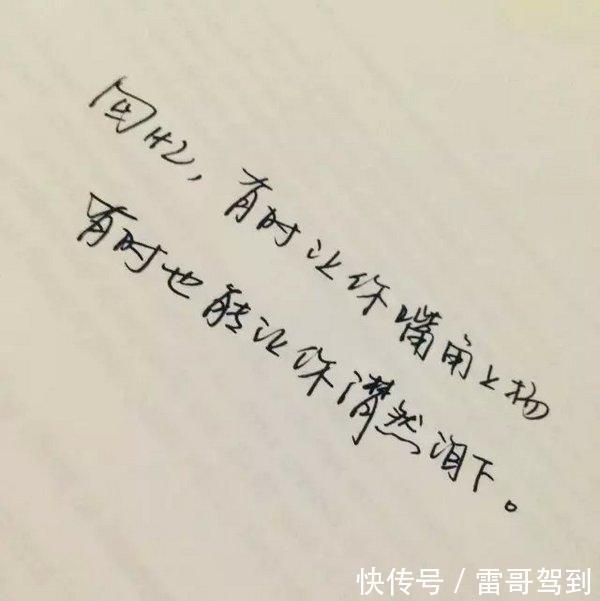 回忆，有时让你嘴角上扬
有时也能让你潸然泪下。
快传号 / 雷哥驾到